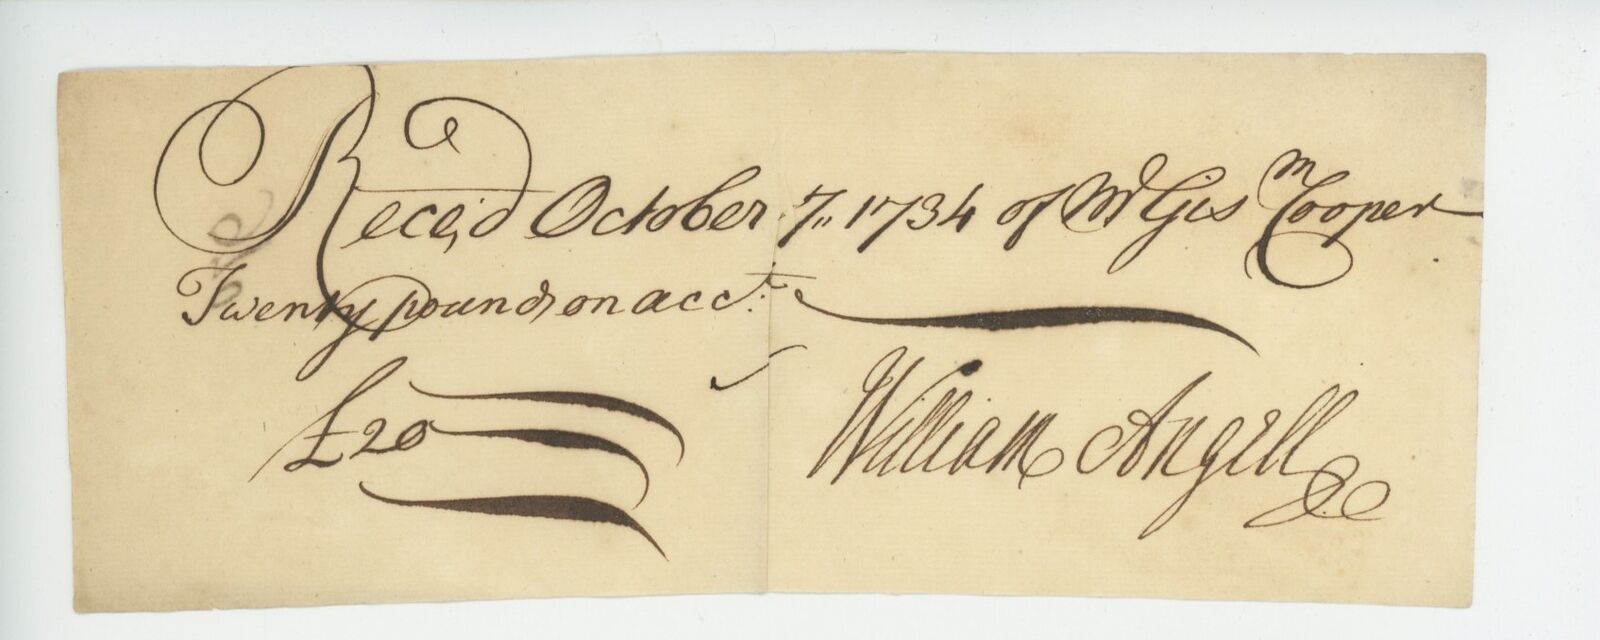 Rece,'d October 7,, 1734 of Mr Gis m Cooper
Twenty pounds on acct:
£20
William Angell